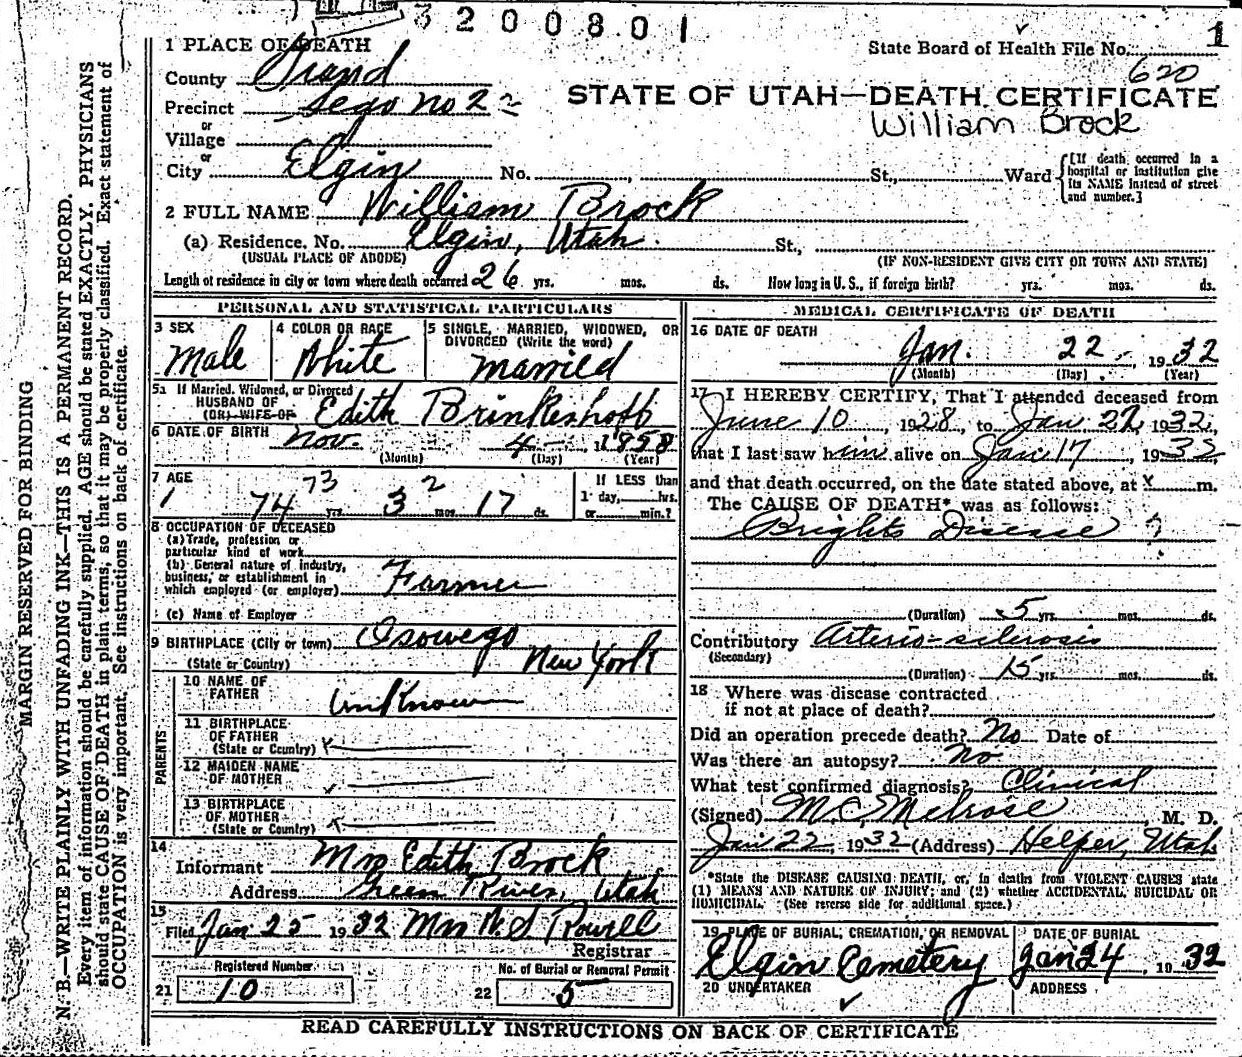 3200801
1
1 PLACE OF DEATH
State Board of Health File No.
County Grand
620
Precinct Sego No 2
STATE OF UTAH—DEATH CERTIFICATE
or
Village
William Brock
or
City Elgin No. St., Ward
[If death occurred in a hospital or institution give its NAME instead of street and number.]
2 FULL NAME William Brock
(a) Residence. No. Elgin, Utah. St.,
(USUAL PLACE OF ABODE) (IF NON-RESIDENT GIVE CITY OR TOWN AND STATE)
Length of residence in city or town where death occurred 26 yrs. mos. ds. How long in U. S., if foreign birth? yrs. mos. ds.
PERSONAL AND STATISTICAL PARTICULARS
3 SEX
Male
4 COLOR OR RACE
White
5 SINGLE, MARRIED, WIDOWED, OR DIVORCED (Write the word)
Married
5a If Married, Widowed, or Divorced
HUSBAND OF
(OR) WIFE OF
Edith Brinkerhoff
6 DATE OF BIRTH Nov. 4 1858
(Month) (Day) (Year)
7 AGE
73 2
74 yrs. 3 mos. 17 ds.
If LESS than
1 day, hrs.
or min.?
8 OCCUPATION OF DECEASED
(a) Trade, profession or
particular kind of work
(b) General nature of industry,
business, or establishment in
which employed (or employer) Farmer
(c) Name of Employer
9 BIRTHPLACE (City or town) Osowego
(State or Country) New York
PARENTS
10 NAME OF
FATHER Unknown
11 BIRTHPLACE
OF FATHER
(State or Country)
12 MAIDEN NAME
OF MOTHER
13 BIRTHPLACE
OF MOTHER
(State or Country)
14
Informant Mrs Edith Brock
Address Green River, Utah
15
Filed Jan 25 1932 Mrs H. S Rowell
Registrar
Registered Number
21 10
No. of Burial or Removal Permit
22 5
MEDICAL CERTIFICATE OF DEATH
16 DATE OF DEATH
Jan. 22 1932
(Month) (Day) (Year)
17 I HEREBY CERTIFY, That I attended deceased from
June 10, 1928, to Jan 22, 1932,
that I last saw him alive on Jan 17, 1932,
and that death occurred, on the date stated above, at m.
The CAUSE OF DEATH* was as follows:
Brights Disease ?
(Duration) 5 yrs. mos. ds.
Contributory Arterio-sclerosis
(Secondary)
(Duration) 15 yrs. mos. ds.
18 Where was disease contracted
if not at place of death?
Did an operation precede death? No Date of
Was there an autopsy? No
What test confirmed diagnosis? Clinical
(Signed) M. C. Melrose, M. D.
Jan 22, 1932 (Address) Helper, Utah
*State the DISEASE CAUSING DEATH, or, in deaths from VIOLENT CAUSES state
(1) MEANS AND NATURE OF INJURY; and (2) whether ACCIDENTAL, SUICIDAL OR
HOMICIDAL. (See reverse side for additional space.)
19 PLACE OF BURIAL, CREMATION, OR REMOVAL
Elgin Cemetery
DATE OF BURIAL
Jan 24, 1932
20 UNDERTAKER
ADDRESS
READ CAREFULLY INSTRUCTIONS ON BACK OF CERTIFICATE
MARGIN RESERVED FOR BINDING
N. B.—WRITE PLAINLY WITH UNFADING INK—THIS IS A PERMANENT RECORD.
Every item of information should be carefully supplied. AGE should be stated EXACTLY. PHYSICIANS
should state CAUSE OF DEATH in plain terms, so that it may be properly classified. Exact statement of
OCCUPATION is very important. See instructions on back of certificate.